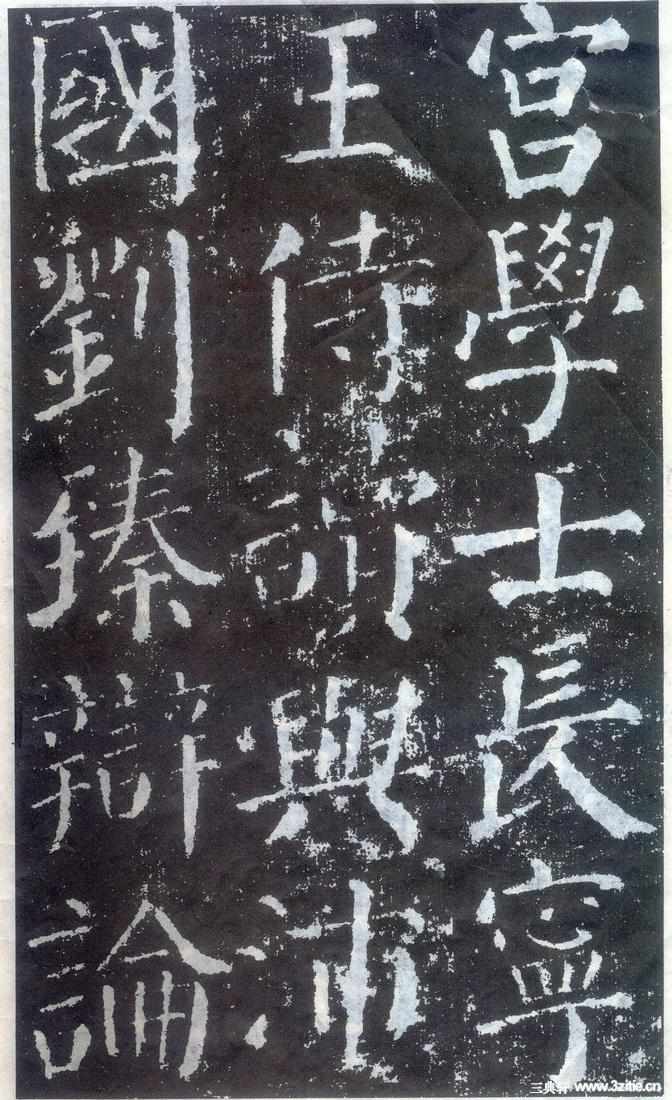 宮學士長寧
王侍讀與沛
國劉臻辯論
三典轩 www.3zitie.cn